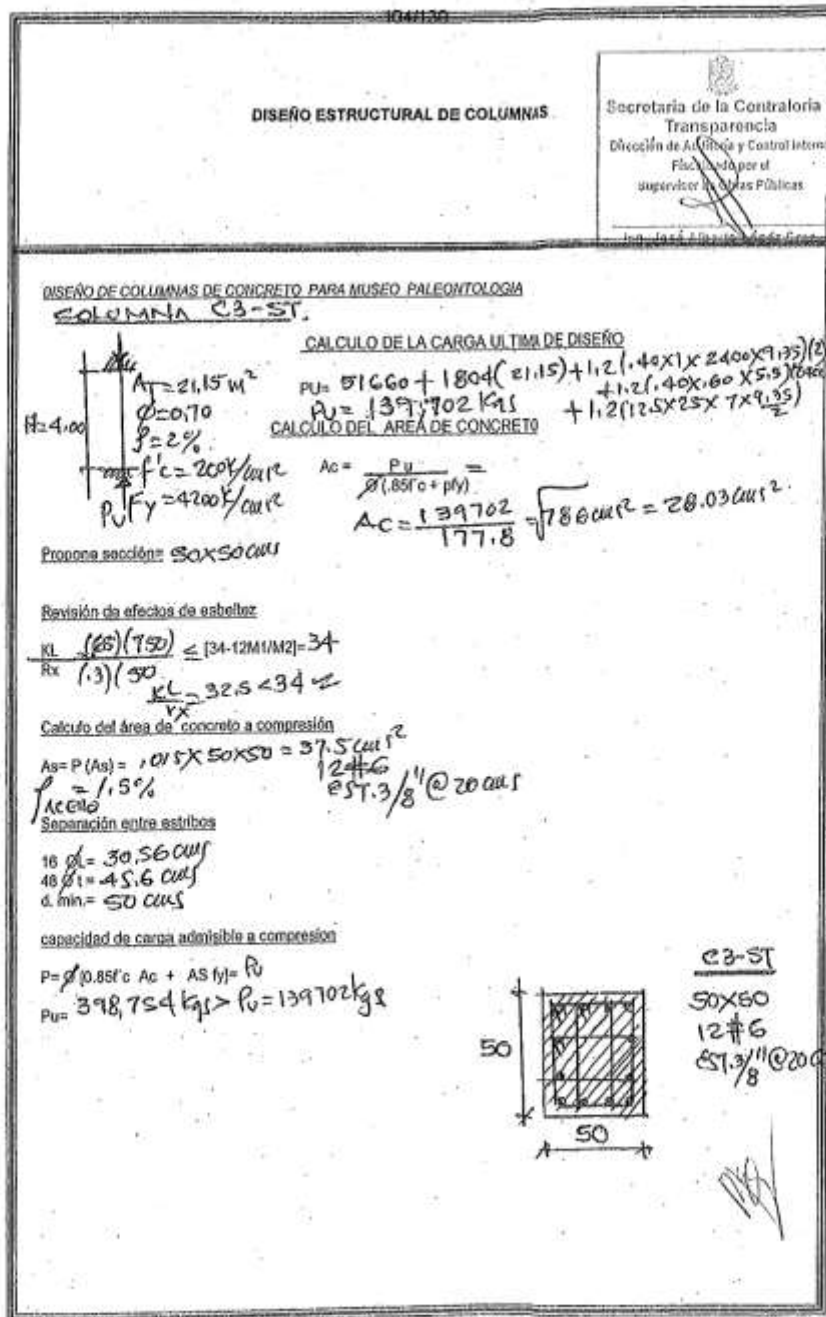 104/130
DISEÑO ESTRUCTURAL DE COLUMNAS
Secretaria de la Contraloria
Transparencia
Dirección de Auditoria y Control Intern
Fiscalizado por el
Supervisor de Obras Públicas
Ing. José
DISEÑO DE COLUMNAS DE CONCRETO PARA MUSEO PALEONTOLOGIA
COLUMNA C3-ST.
H=4.00
AT=21,15 m²
Ø=0,70
ρ=2%
f'c=200K/cm²
Fy=4200K/cm²
PU
CALCULO DE LA CARGA ULTIMA DE DISEÑO
PU= 51660+1804(21.15)+1.2(.40X1X2400X9.35)(2)
+1.2(.40X.60X5.5)(2400
+1.2(12.5X25X7X9.35/2)
PU= 139,702 Kgs
CALCULO DEL AREA DE CONCRETO
Ac = Pu / Ø(.85f'c + pfy) =
Ac = 139702 / 177.8 = √786cms² = 28.03cms².
Propone sección= 50X50cms
Revisión de efectos de esbeltez
KL / Rx (.65)(750) / (.3)(50 ≤ [34-12M1/M2]=34
KL / rx = 32.5<34
Calculo del área de concreto a compresión
As= P (As) = .015X50X50=37.5cms²
12#6
ρ ACERO = 1.5%
EST.3/8"@20cms
Separación entre estribos
16 ØL= 30,56cms
48 Øt= 45.6 cms
d. min.= 50 cms
capacidad de carga admisible a compresion
P=Ø[0.85f'c Ac + AS fy]= Pu
Pu= 398,754 Kgs> Pu=139702kgs
C3-ST
50X50
12#6
EST.3/8"@20C
50
50